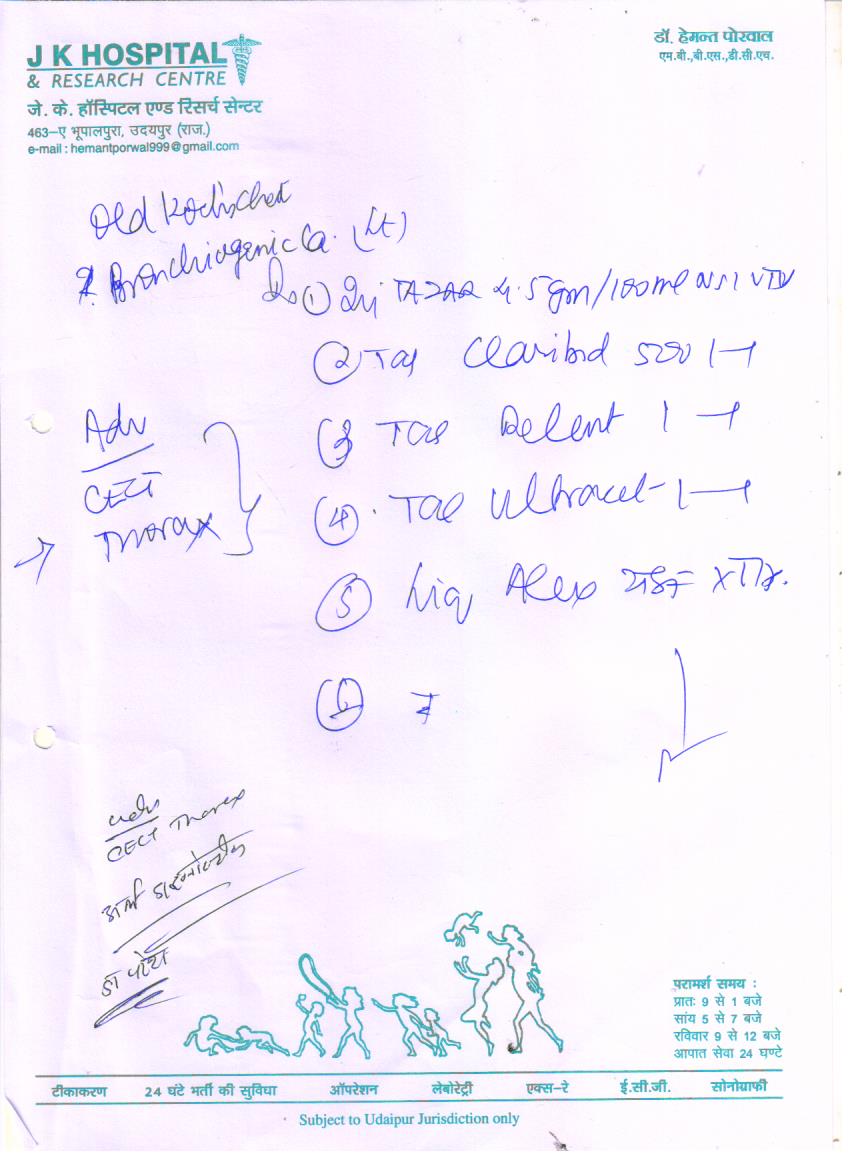 J K HOSPITAL
& RESEARCH CENTRE
जे. के. हॉस्पिटल एण्ड रिसर्च सेन्टर
463–ए भूपालपुरा, उदयपुर (राज.)
e-mail : hemantporwal999@gmail.com
डॉ. हेमन्त पोरवाल
एम.बी.,बी.एस.,डी.सी.एच.
Old Koch's Chest
? Bronchiogenic Ca. (Lt)
① Inj TAZAR 4.5 gm/100ml NS
② Tab Claribid 500 1—1
③ Tab 1—1
④ Tab Ultracet 1—1
⑤ Liq Alex
⑥
Adv
CECT
Thorax
Adv
CECT Thorax
परामर्श समय :
प्रातः 9 से 1 बजे
सांय 5 से 7 बजे
रविवार 9 से 12 बजे
आपात सेवा 24 घण्टे
टीकाकरण 24 घंटे भर्ती की सुविधा ऑपरेशन लेबोरेट्री एक्स–रे ई.सी.जी. सोनोग्राफी
Subject to Udaipur Jurisdiction only